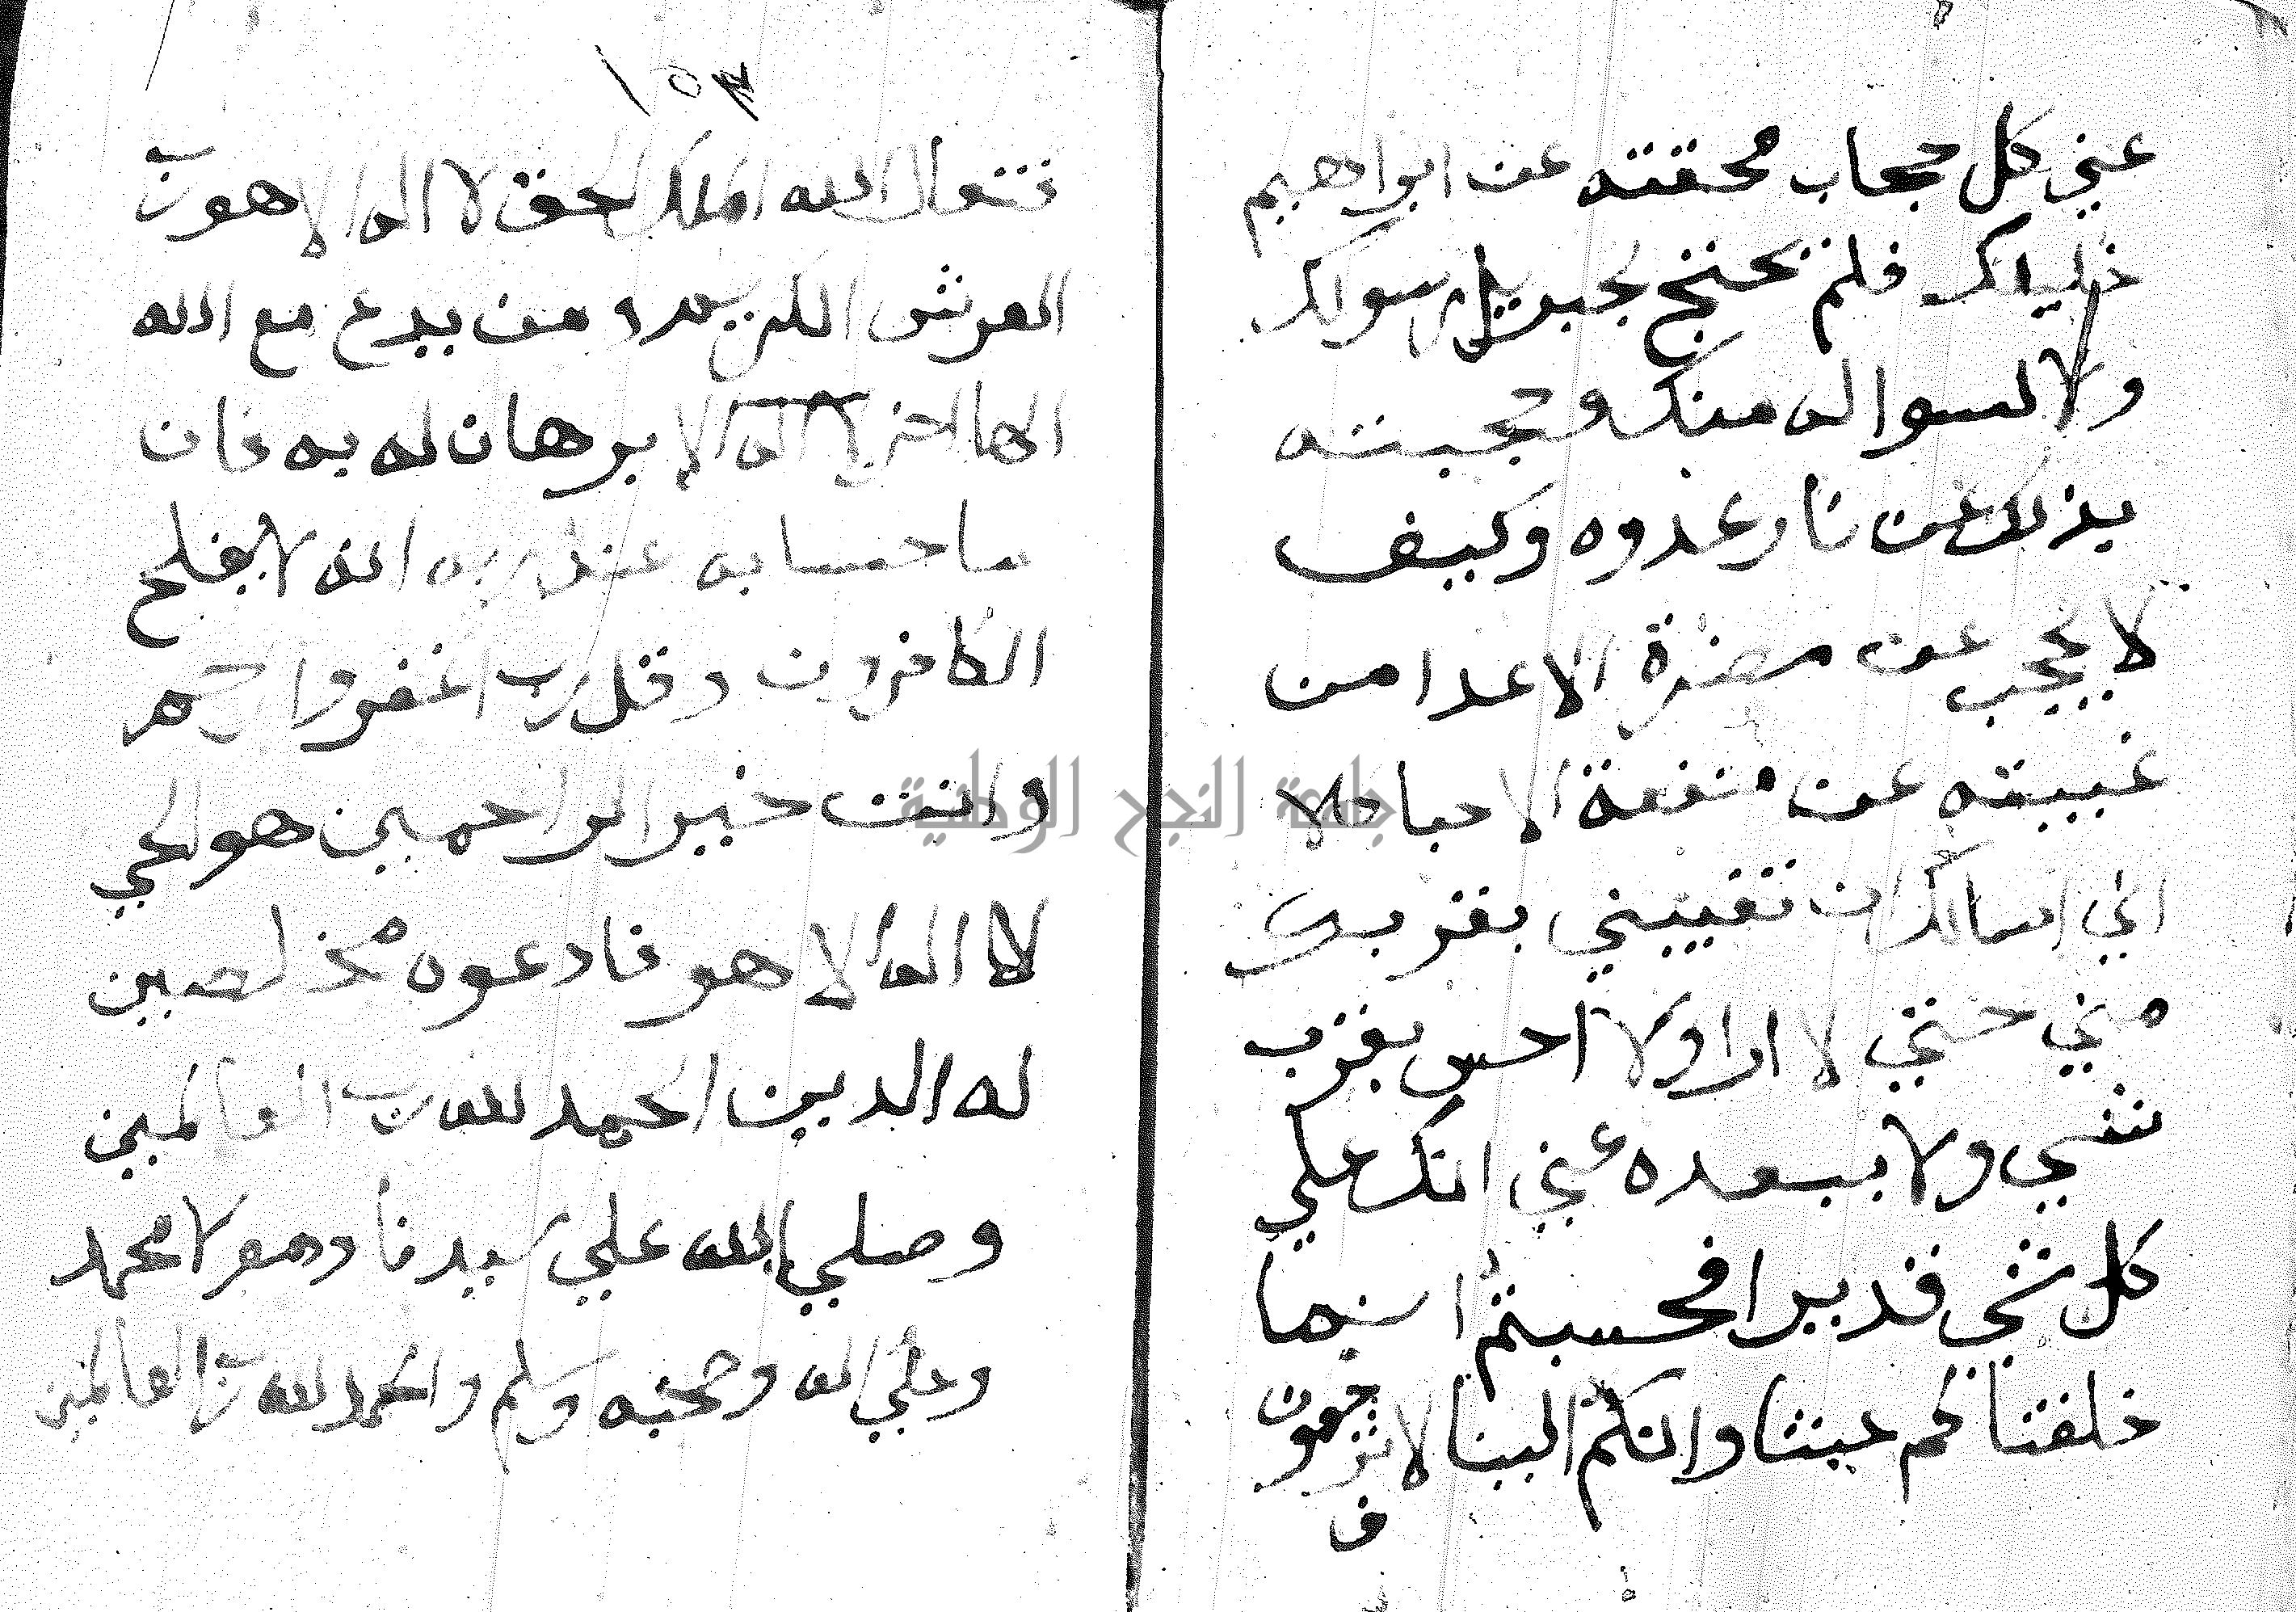 عني كل حجاب محقته عن ابراهيم
خليلك فلم يحتج لجبريل رسولك
ولا لسواله منك وحجبته
بذلك عن نار عدوه وكيف
لا يحجب عن مضرة الاعدا من
غيبته عن منفعة الاحبا كلا
اني اسالك ان تغيبني بقربك
مني حتي لا ارا ولا احس بقرب
شي ولا ببعده عني انك علي
كل شي قدير افحسبتم انما
خلقناكم عبثا وانكم الينا لا ترجعون
ف
١٥٣
فتعال الله الملك الحق لا اله الا هو رب
العرش الكريم ومن يدع مع الله
الها اخر لا برهان له به فان
ما حسابه عند ربه انه لا يفلح
الكافرون وقل رب اغفر وارحم
وانت خير الراحمين هو الحي
لا اله الا هو فادعوه مخلصين
له الدين الحمد لله رب العالمين
وصلي الله علي سيدنا ومولا محمد
وعلي اله وصحبه وسلم والحمد لله رب العالمين
جامعة النجاح الوطنية